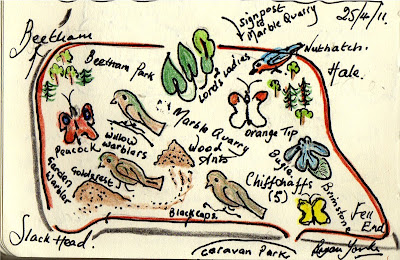 signpost
to
Marble Quarry
25/4/11
Beetham
Nuthatch.
Beetham Park
Lords & Ladies
Hale.
Marble Quarry
wood
Ants
Orange Tip
Willow
warblers
Peacock
Goldcrest
Garden
Warbler
Bugle
Chiffchaffs
(5)
Brimstone
Blackcaps.
Fell
End
Slack Head.
Caravan Park